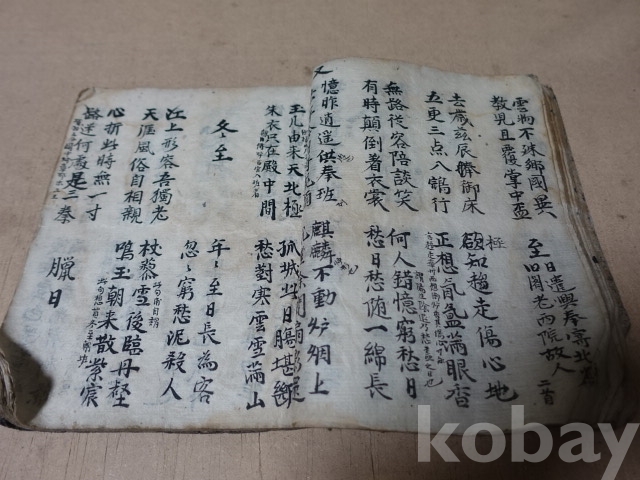 雲物不殊鄉國異
教兒且覆掌中盃
至日遣興奉寄北省
旧閣老两院故人 二首
去歲玆辰捧御床
五更三点入鵷行
欲知趨走傷心地
正想氤氳滿眼香
無路從容陪談笑
有時顛倒着衣裳
何人錯憶窮愁日
愁日愁随一線長
又
憶昨逍遥供奉班
麒麟不動炉烟上
玉几由来天北極
朱衣只在殿中間
孤城此日腸堪斷
愁對寒雲雪滿山
冬至
年〻至日長為客
忽〻窮愁泥殺人
江上形容吾獨老
天涯風俗自相親
杖藜雪後臨丹壑
鳴玉朝来散紫宸
心折此時無一寸
路迷何處是三秦
臘日
kobay